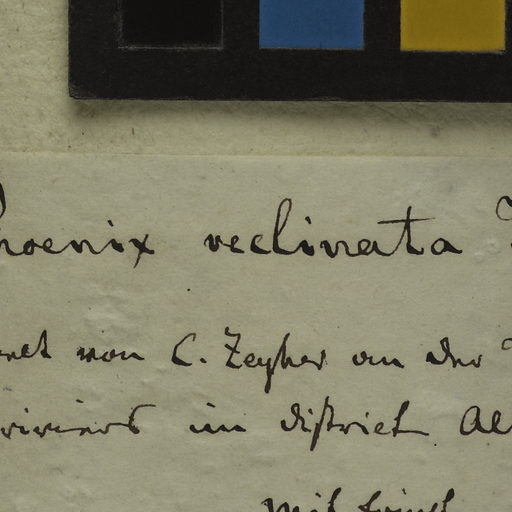 hoenix reclinata
von C. Zeyher an der
riviers im district Al
mit